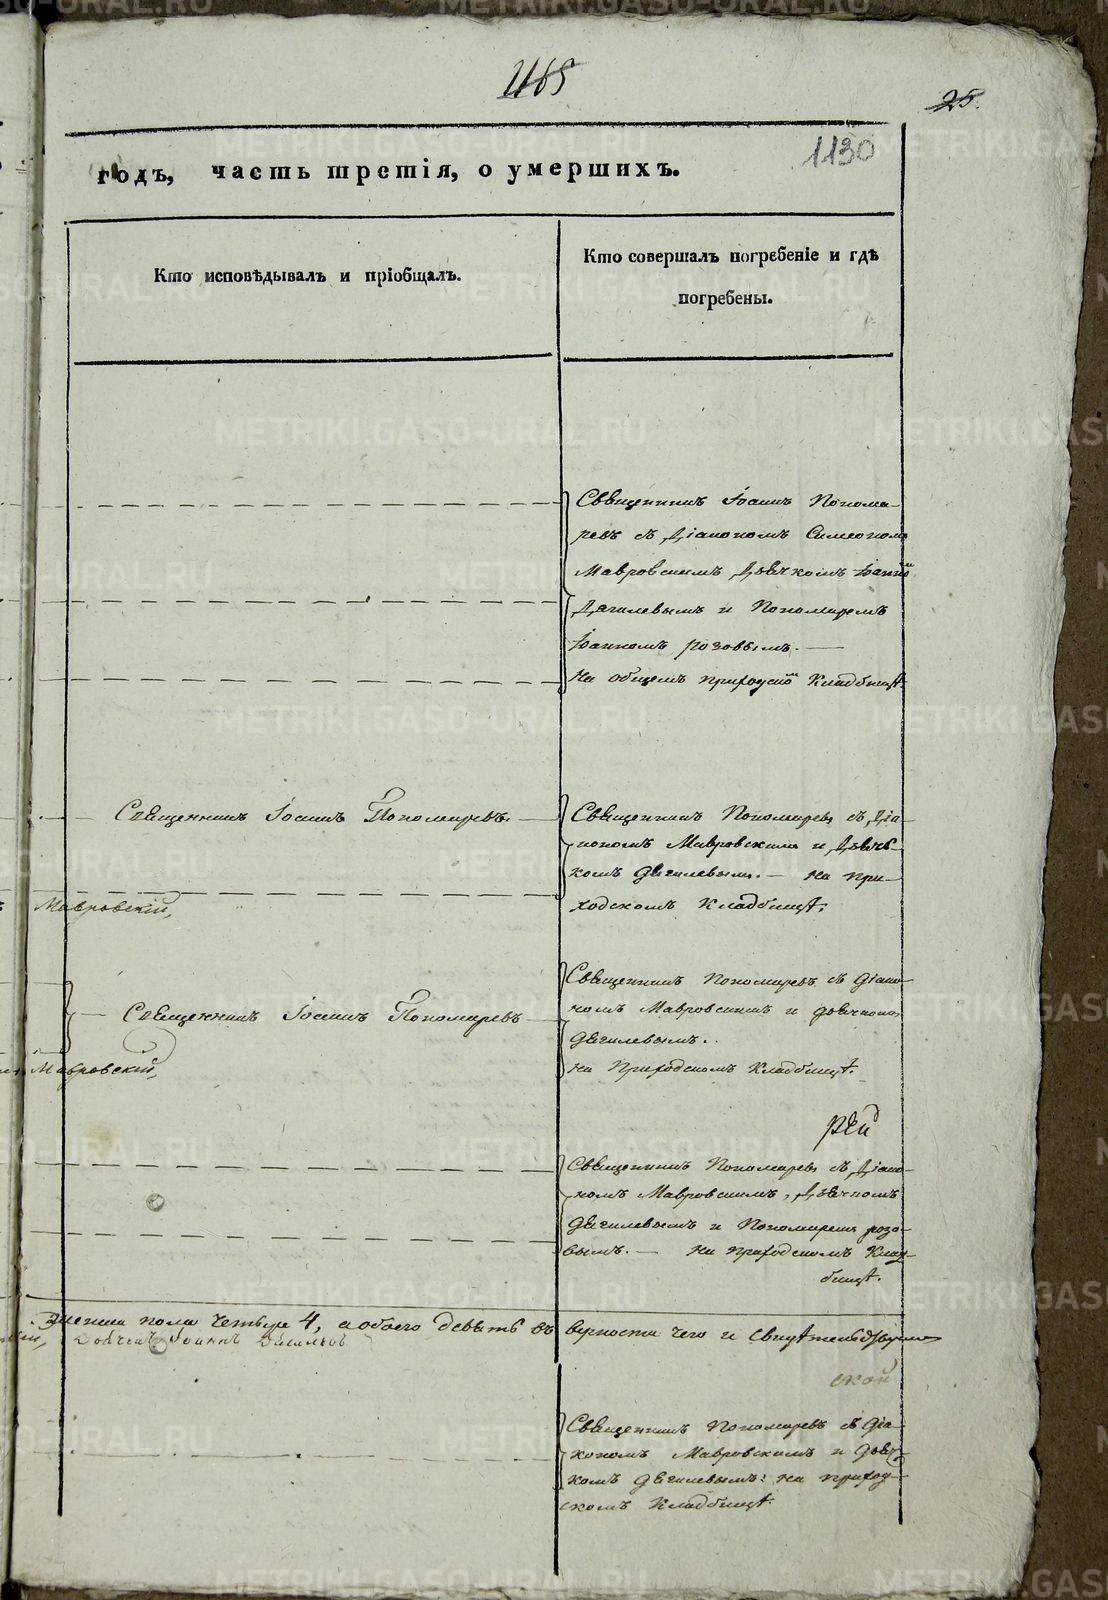 1165
25.
1130
годъ, часть третія, о умершихъ.
Кто исповѣдывалъ и пріобщалъ.
Кто совершалъ погребеніе и гдѣ
погребены.
Священникъ Іоаннъ Понома-
ревъ съ Діакономъ Симеономъ
Мавровскимъ Дьячкомъ Іоанномъ
Дягилевымъ и Пономаремъ
Іоанномъ Розовымъ. —
На общемъ приходскомъ Кладбищѣ.
Священникъ Іоаннъ Пономаревъ.
Священникъ Пономаревъ съ Діа-
кономъ Мавровскимъ и Дьяч-
комъ Дягилевымъ. — На при-
ходскомъ Кладбищѣ.
Мавровскій,
Священникъ Іоаннъ Пономаревъ
Священникъ Пономаревъ съ Діако-
номъ Мавровскимъ и Дьячкомъ
Дягилевымъ.
на Приходскомъ Кладбищѣ.
Мавровскій,
рей
Священникъ Пономаревъ съ Діако-
номъ Мавровскимъ, Дьячкомъ
Дягилевымъ и Пономаремъ Розо-
вымъ. — На приходскомъ Клад-
бищѣ.
женска пола четыре 4, а обоего девять въ вѣрности чего и свидѣтельствуемъ
Дьячекъ Іоаннъ Дягилевъ
ской
Священникъ Пономаревъ съ Діа-
кономъ Мавровскимъ и Дьяч-
комъ Дягилевымъ: на приход-
скомъ Кладбищѣ.
METRIKI.GASO-URAL.RU